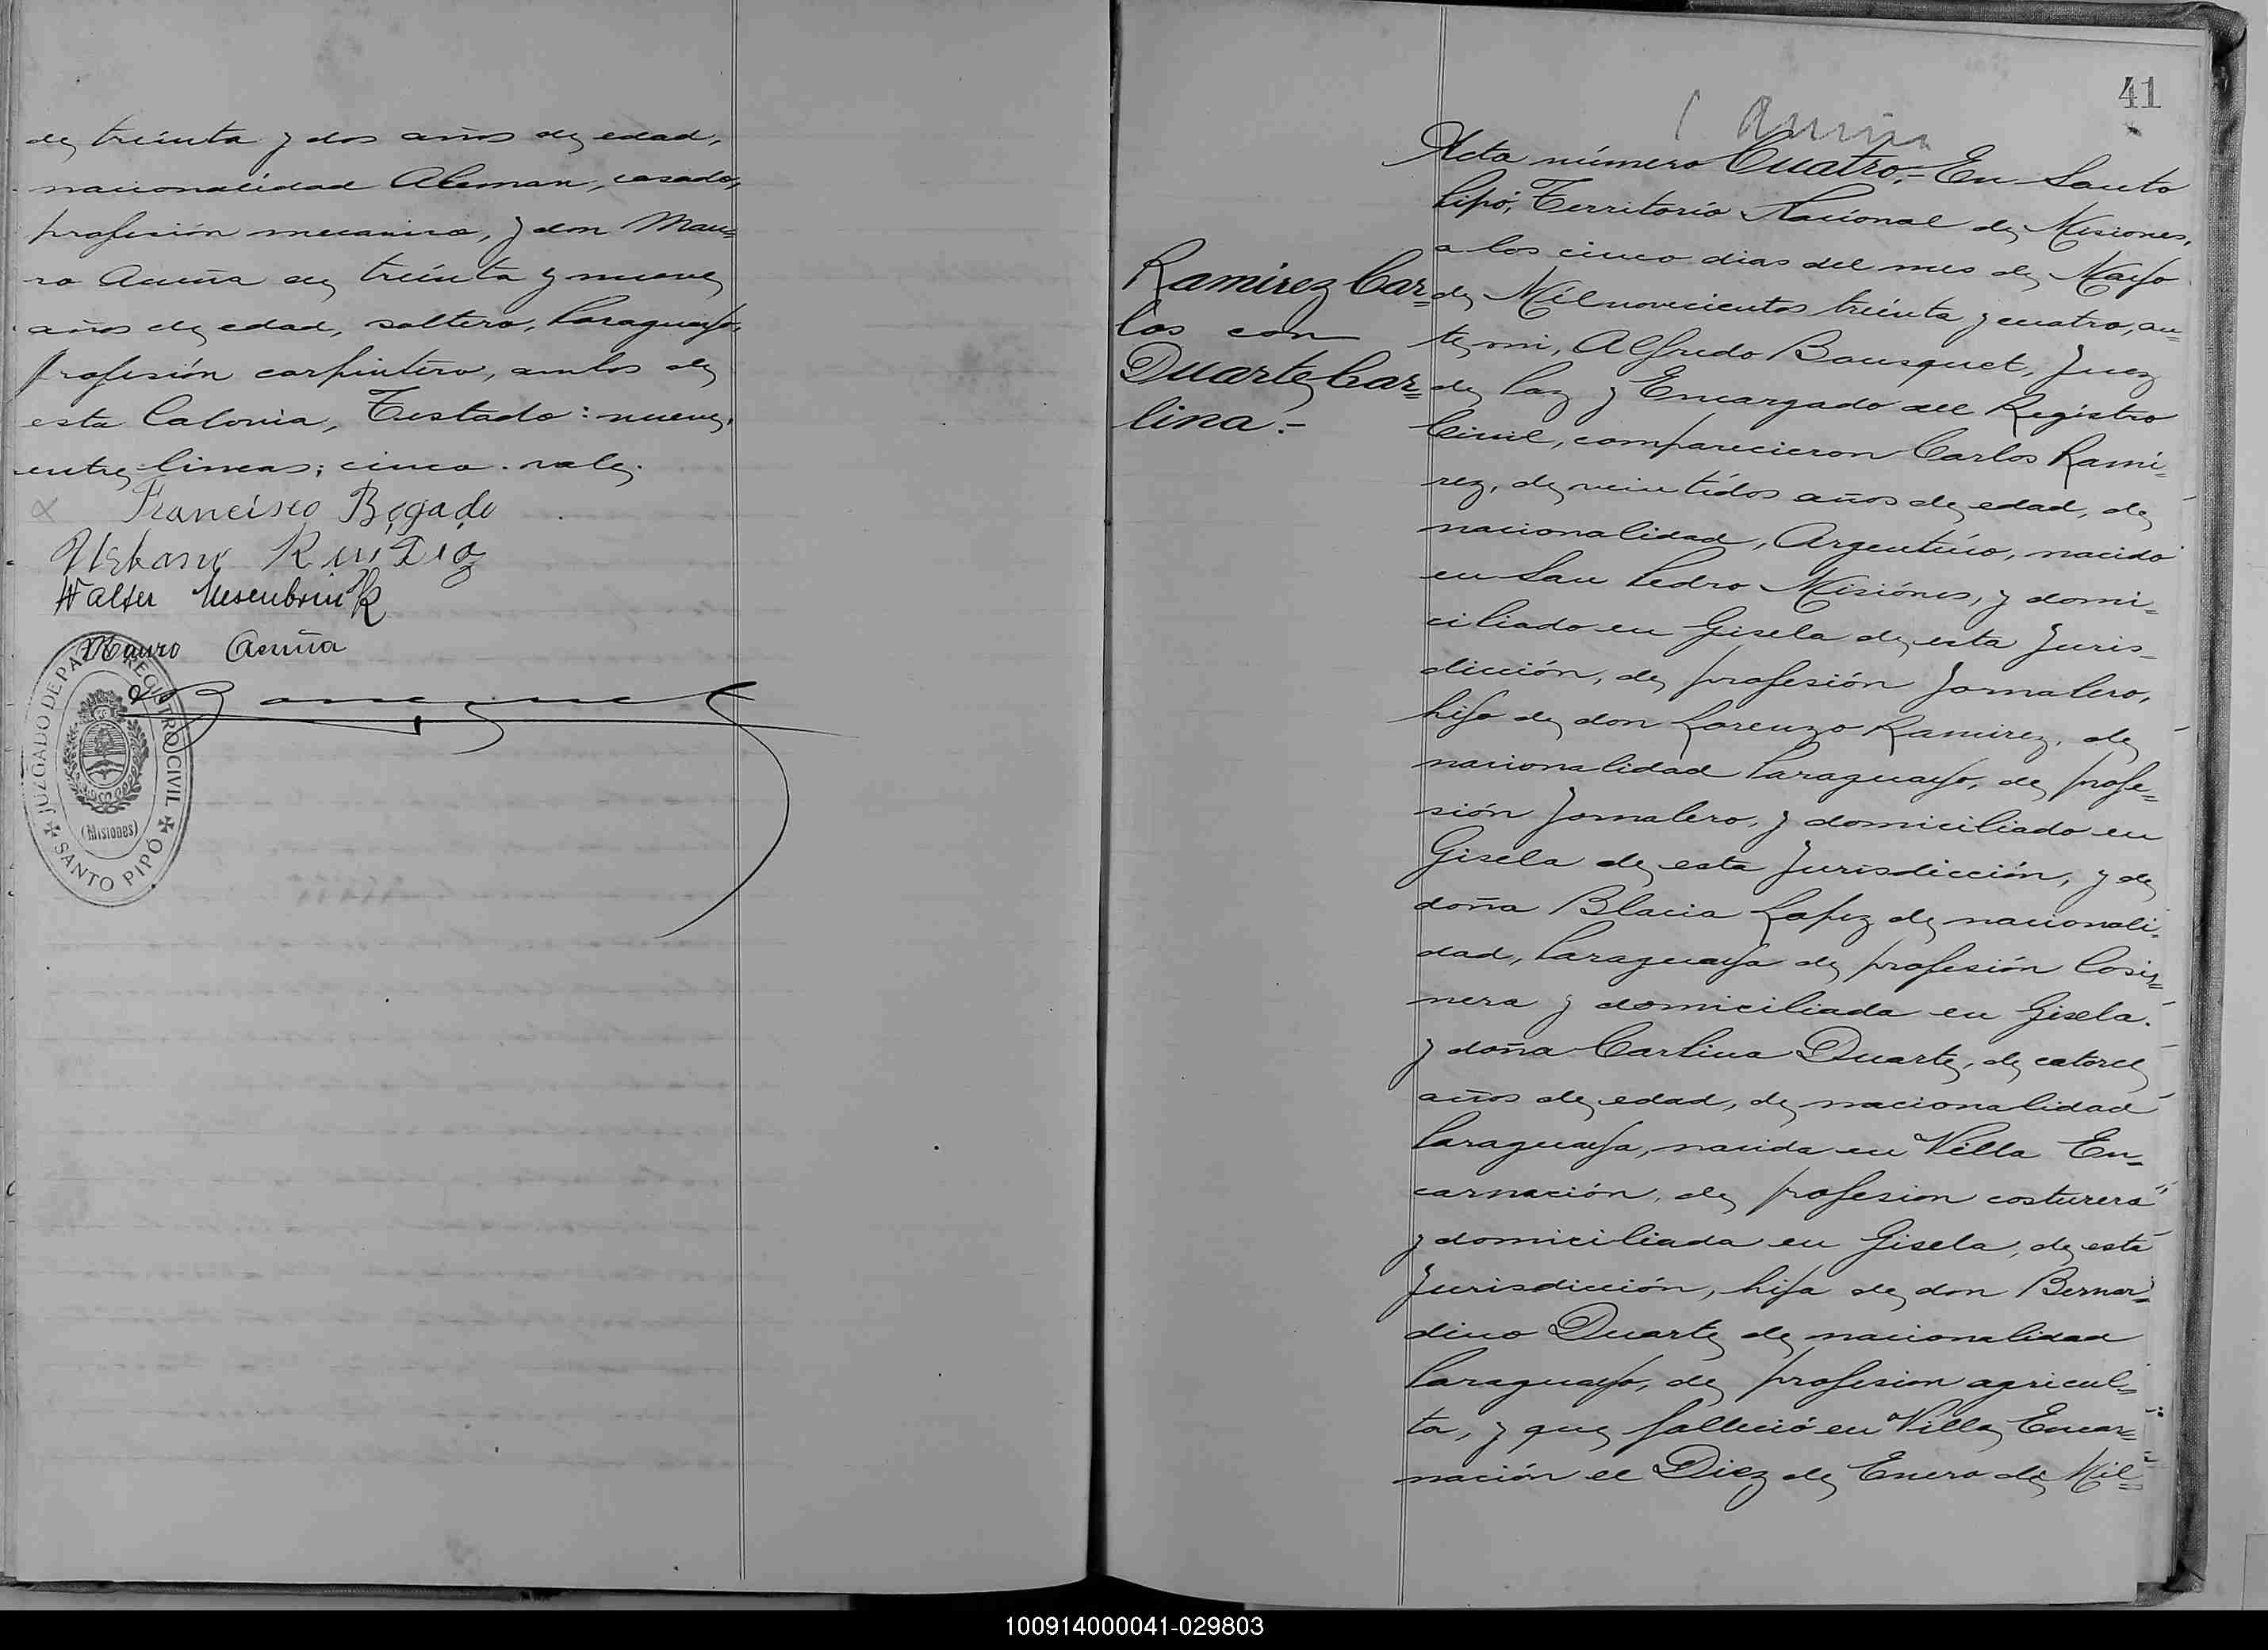 de treinta y dos años de edad,
nacionalidad Aleman, casado,
profesión mecanico, y don Mau=
ro Acuña de treinta y nueve
años de edad, soltero, Paraguayo,
profesión carpintero, ambos de
esta Colonia, Testado: nueve,
entre lineas; cinco. vale.
Francisco Bogado
Ruiz Diaz
Walter
Mauro Acuña
JUZGADO DE PAZ Y REGISTRO CIVIL
(Misiones)
SANTO PIPÓ
41
Ramirez Car=
los con
Duarte Car=
lina.-
Acta número Cuatro.- En Santo
Pipó, Territorio Nacional de Misiones,
a los cinco dias del mes de Mayo
de Mil novecientos treinta y cuatro, an=
te mi, Alfredo Bousquet, Juez
de Paz y Encargado del Registro
Civil, comparecieron Carlos Rami=
rez, de veintidos años de edad, de
nacionalidad, Argentino, nacido
en San Pedro Misiónes, y domi=
ciliado en Gisela de esta Juris-
dicción, de profesión Jornalero,
hijo de don Lorenzo Ramirez, de
nacionalidad Paraguayo, de profe=
sión Jornalero, y domiciliado en
Gisela de esta Jurisdicción, y de
doña Blacia Lopez de nacionali=
dad, Paraguaya de profesión Cosi=
nera y domiciliada en Gisela.
y doña Carlina Duarte, de catorce
años de edad, de nacionalidad
Paraguaya, nacida en Villa En=
carnación, de profesion costurera
y domiciliada en Gisela, de esta
Jurisdicción, hija de don Bernar=
dino Duarte de nacionalidad
Paraguayo, de profesion agricul=
tor, y que falleció en Villa Encar=
nación el Diez de Enero de Mil=
100914000041-029803